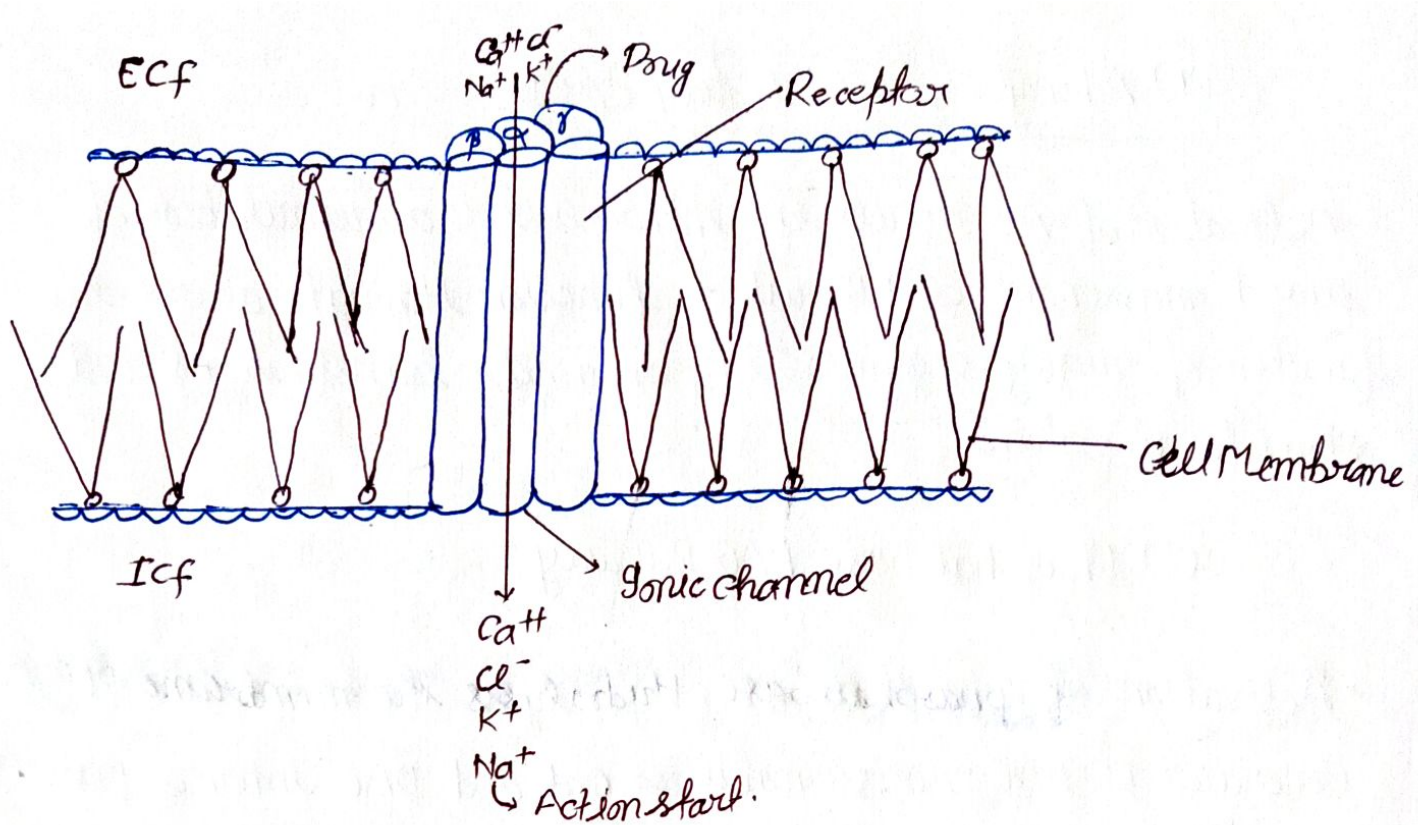 ECf
Ca++ Cl-
Na+ K+
Drug
Receptor
β α γ
Cell Membrane
ICf
Ionic channel
Ca++
Cl-
K+
Na+
Action start.